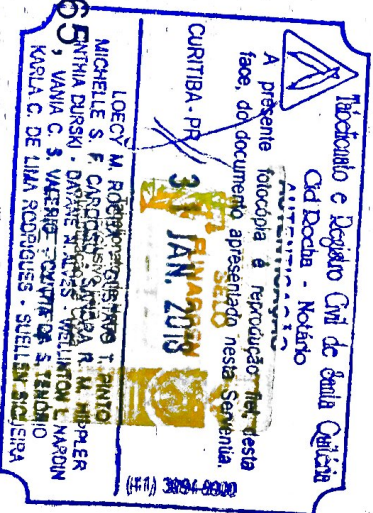 Tabelionato e Registro Civil de Santa Quitéria
Cid Rocha - Notário
AUTENTICAÇÃO
A presente fotocópia é reprodução fiel desta
face, do documento apresentado nesta Serventia.
CURITIBA - PR
31 JAN. 2018
FUNARPEN
SELO
LOECY M.
T. PINTO
MICHELLE S. F.
R. M. HIPPLER
CINTHIA DURSKI - ALVES - WELLINTON L. NARDIN
65
VANIA C. S. VALERIO - S. TENORIO
KARLA C. DE LIMA RODRIGUES - SUELLEN SIQUEIRA
(41)